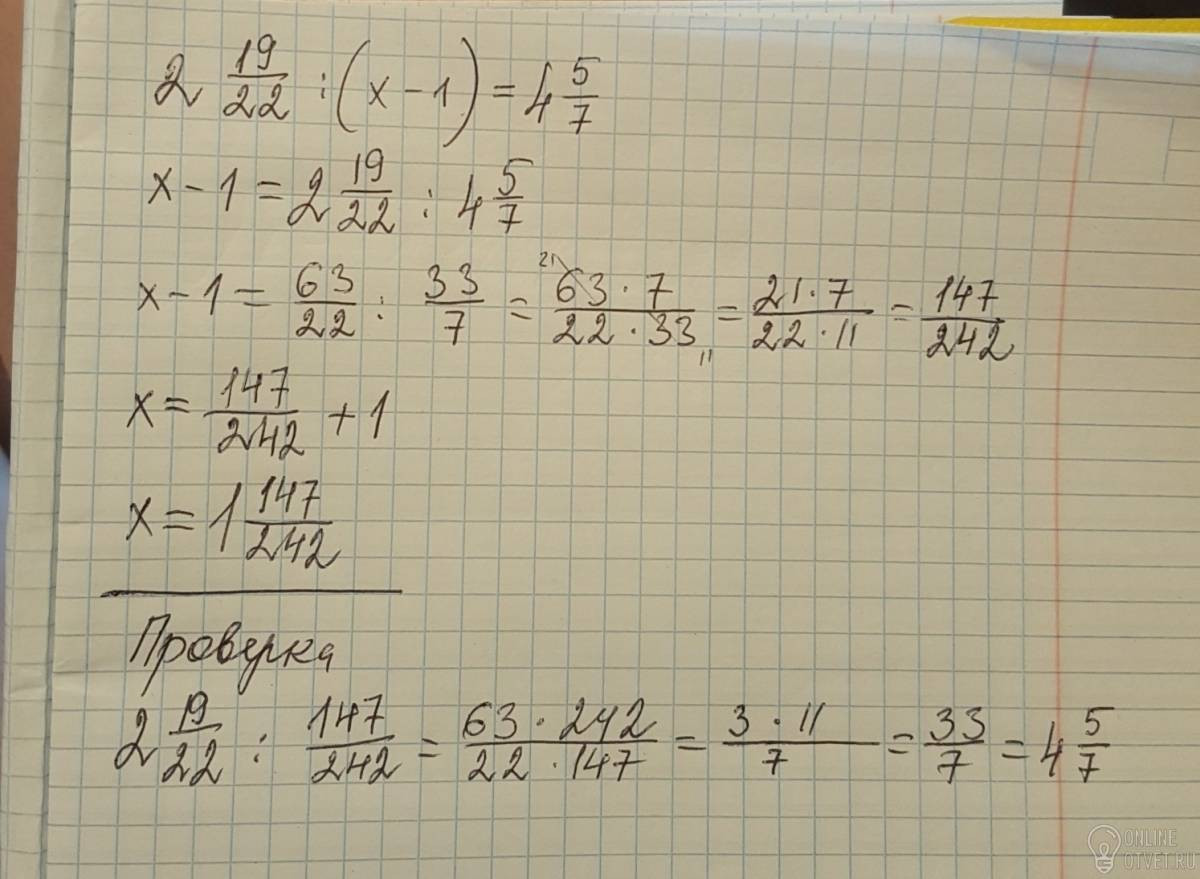 2 19/22 : (x - 1) = 4 5/7
x - 1 = 2 19/22 : 4 5/7
x - 1 = 63/22 : 33/7 = 21 63 · 7 / 22 · 33 11 = 21 · 7 / 22 · 11 = 147/242
x = 147/242 + 1
x = 1 147/242
Проверка
2 19/22 : 147/242 = 63 · 242 / 22 · 147 = 3 · 11 / 7 = 33/7 = 4 5/7
ONLINE
OTVET.RU